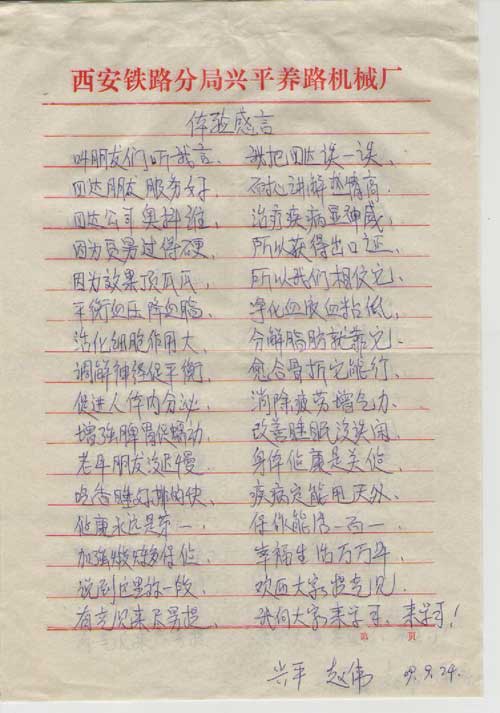 西安铁路分局兴平养路机械厂
体验感言
叫朋友们听我言、 我把四达谈一谈、
四达朋友服务好、 耐心讲解热情高、
四达公司奥科谁、 治疗疾病显神威、
因为质量过得硬、 所以获得出口证、
因为效果顶瓜瓜、 所以我们相信它、
平衡血压降血脂、 净化血液血粘低、
活化细胞作用大、 分解脂肪就靠它、
调解神经促平衡、 愈合骨折它能行、
促进人体内分泌、 消除疲劳增气力、
增强脾胃促蠕动、 改善睡眠没误闲、
老年朋友没迟慢、 身体健康是关键、
吃香睡好排的快、 疾病定能甩天外、
健康永远是第一、 保你能活一百一、
加强锻炼多保健、 幸福生活万万年、
说到这里称一段、 欢迎大家提意见、
有意见来尽量提、 我向大家来学习、来学习!
第 页
兴平 赵伟 09.9.24.